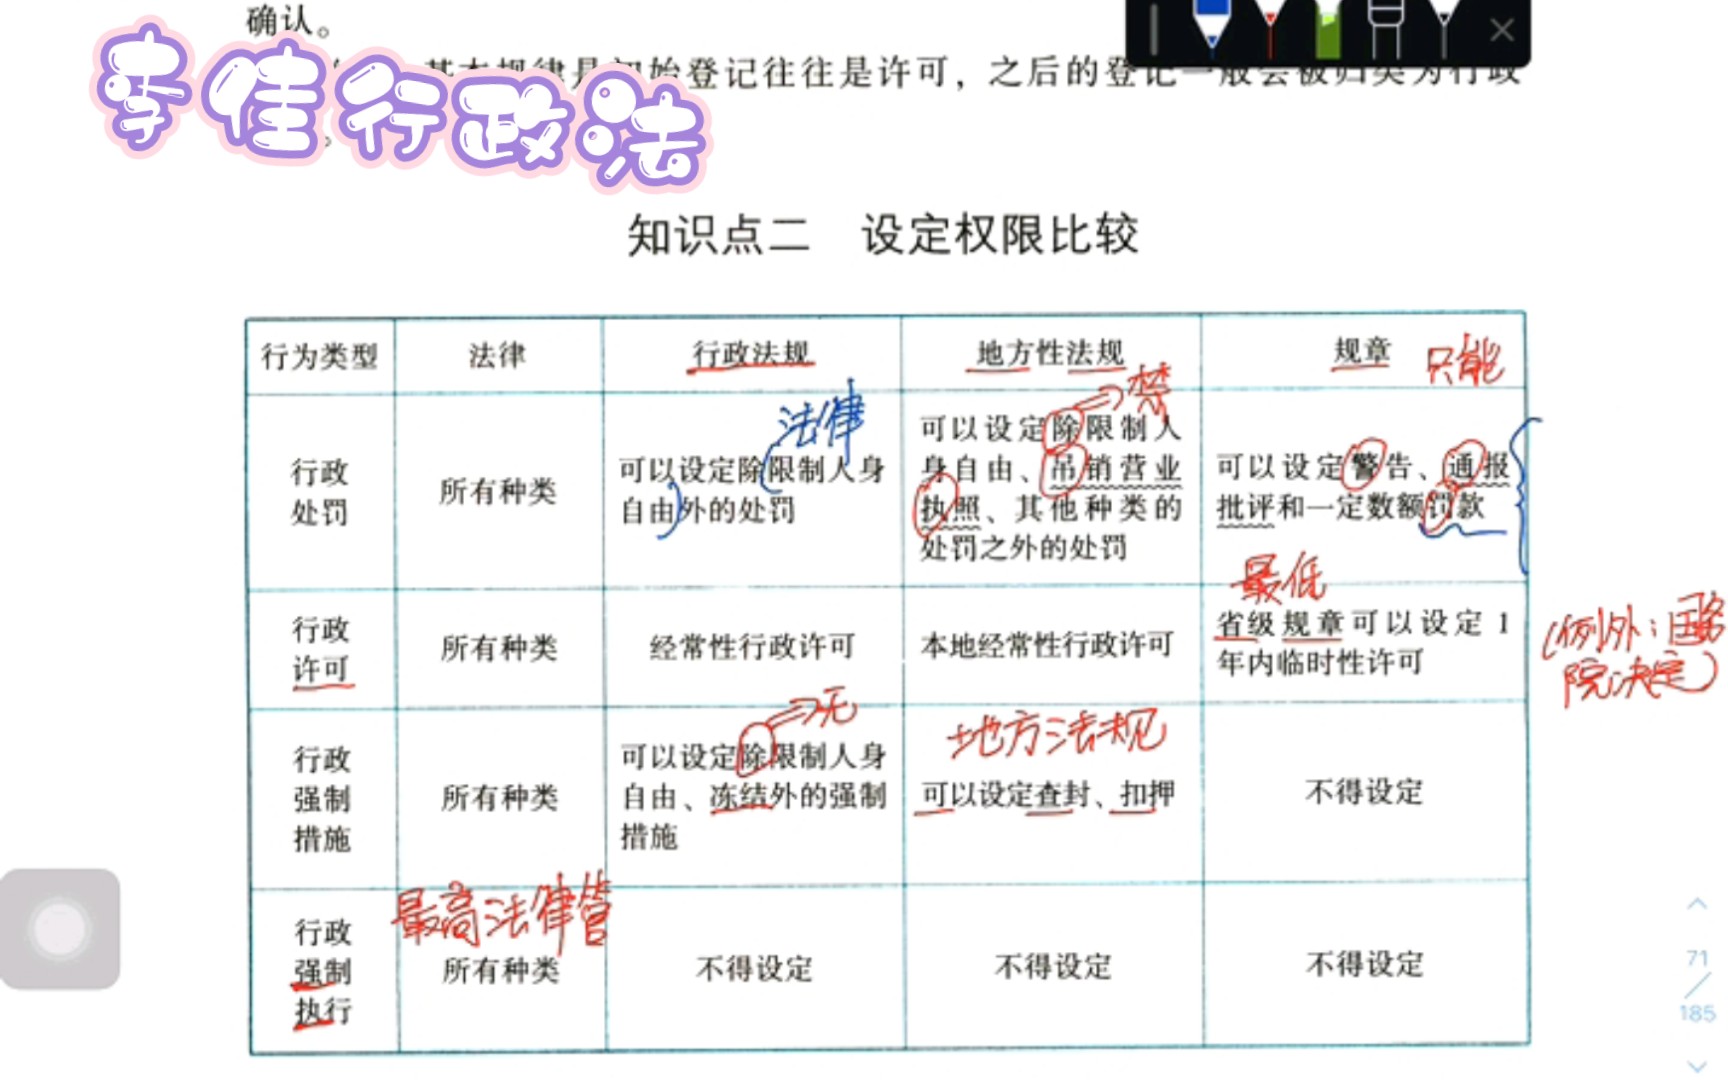 确认。
基本规律是初始登记往往是许可，之后的登记一般会被归类为行政
李佳行政法
知识点二 设定权限比较
行为类型 法律 行政法规 地方性法规 规章 只能
法律
禁
行政
处罚
所有种类
可以设定除限制人身
自由外的处罚
可以设定除限制人
身自由、吊销营业
执照、其他种类的
处罚之外的处罚
可以设定警告、通报
批评和一定数额罚款
最低
行政
许可
所有种类
经常性行政许可
本地经常性行政许可
省级规章可以设定1
年内临时性许可
(例外：国务
院决定)
无
地方法规
行政
强制
措施
所有种类
可以设定除限制人身
自由、冻结外的强制
措施
可以设定查封、扣押
不得设定
最高法律管
行政
强制
执行
所有种类
不得设定
不得设定
不得设定
71
185